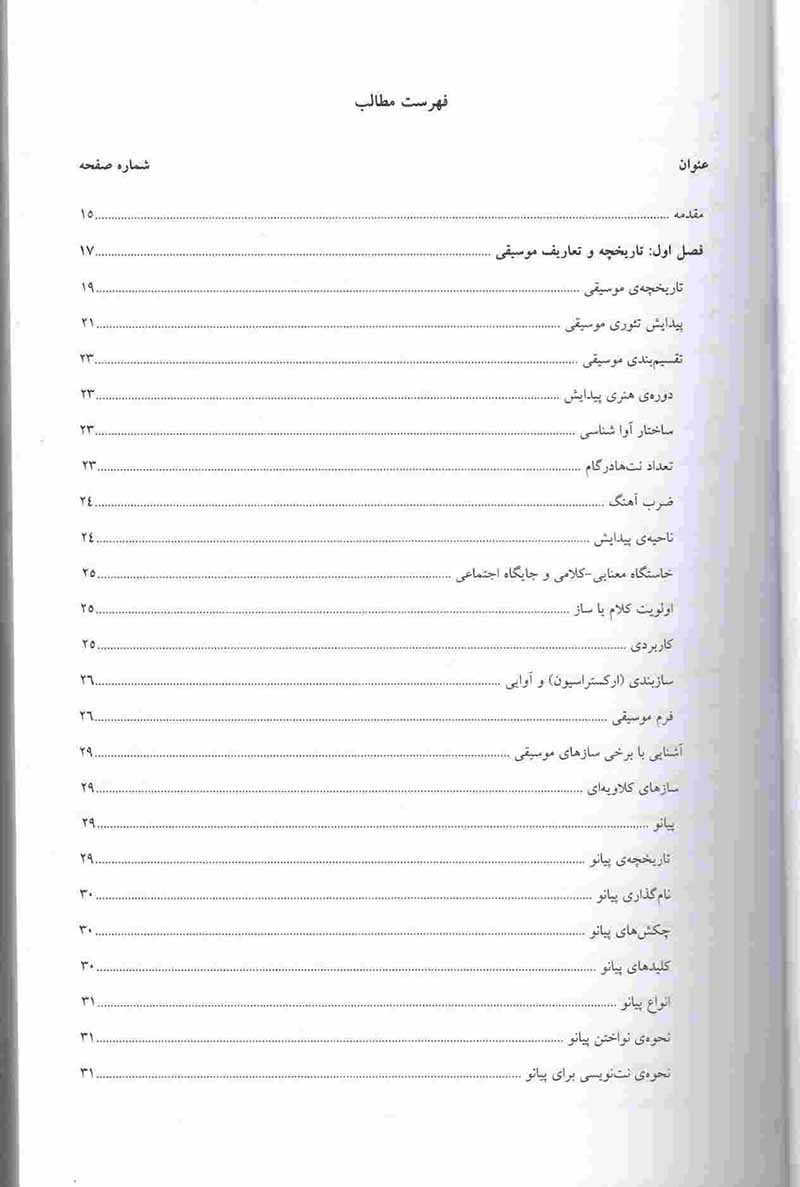 فهرست مطالب
عنوان شماره صفحه
مقدمه ........ ۱۵
فصل اول: تاریخچه و تعاریف موسیقی ........ ۱۷
تاریخچه‌ی موسیقی ........ ۱۹
پیدایش تئوری موسیقی ........ ۲۱
تقسیم‌بندی موسیقی ........ ۲۳
دوره‌ی هنری پیدایش ........ ۲۳
ساختار آوا شناسی ........ ۲۳
تعداد نت‌هادرگام ........ ۲۳
ضرب آهنگ ........ ۲۴
ناحیه‌ی پیدایش ........ ۲۴
خاستگاه معنایی-کلامی و جایگاه اجتماعی ........ ۲۵
اولویت کلام یا ساز ........ ۲۵
کاربردی ........ ۲۵
سازبندی (ارکستراسیون) و آوایی ........ ۲۶
فرم موسیقی ........ ۲۶
آشنایی با برخی سازهای موسیقی ........ ۲۹
سازهای کلاویه‌ای ........ ۲۹
پیانو ........ ۲۹
تاریخچه‌ی پیانو ........ ۲۹
نام‌گذاری پیانو ........ ۳۰
چکش‌های پیانو ........ ۳۰
کلیدهای پیانو ........ ۳۰
انواع پیانو ........ ۳۱
نحوه‌ی نواختن پیانو ........ ۳۱
نحوه‌ی نت‌نویسی برای پیانو ........ ۳۱